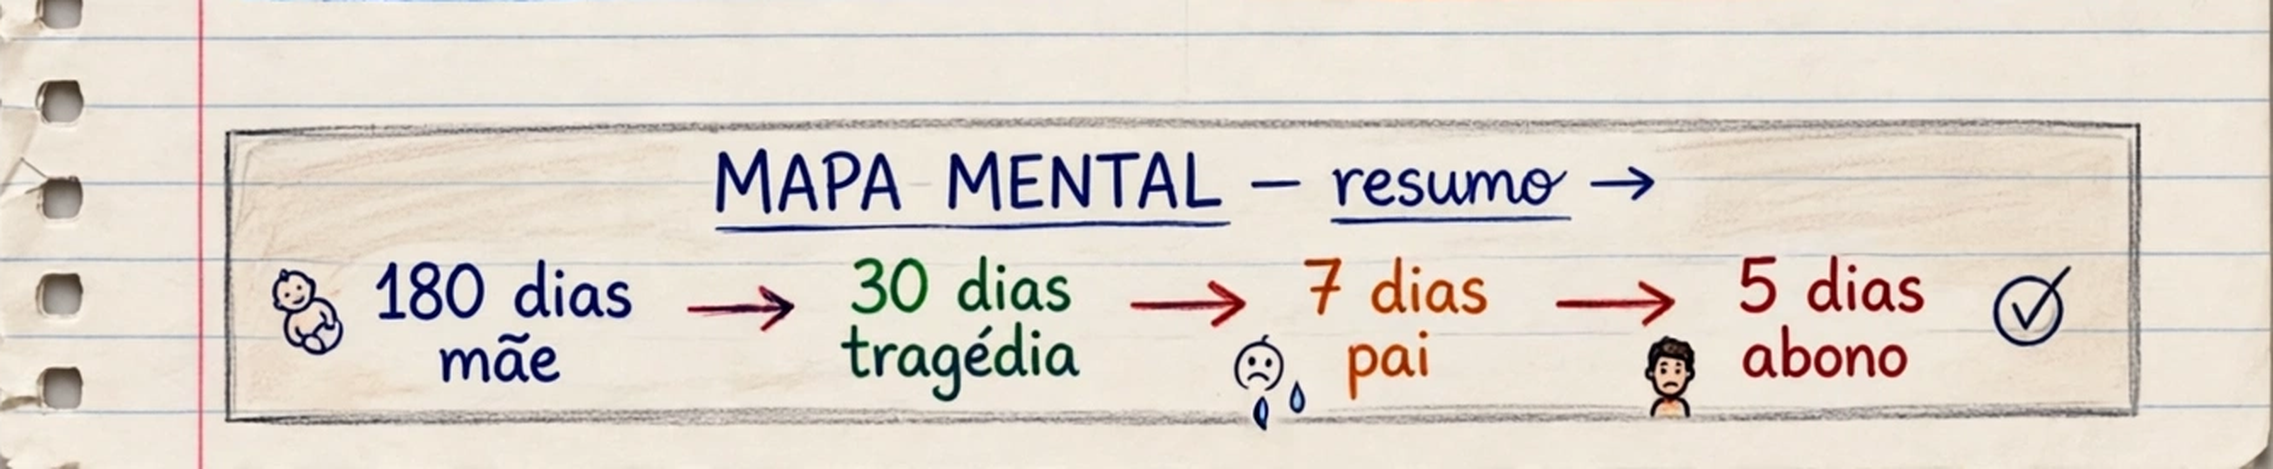 MAPA MENTAL – resumo →
180 dias → 30 dias → 7 dias → 5 dias
mãe tragédia pai abono